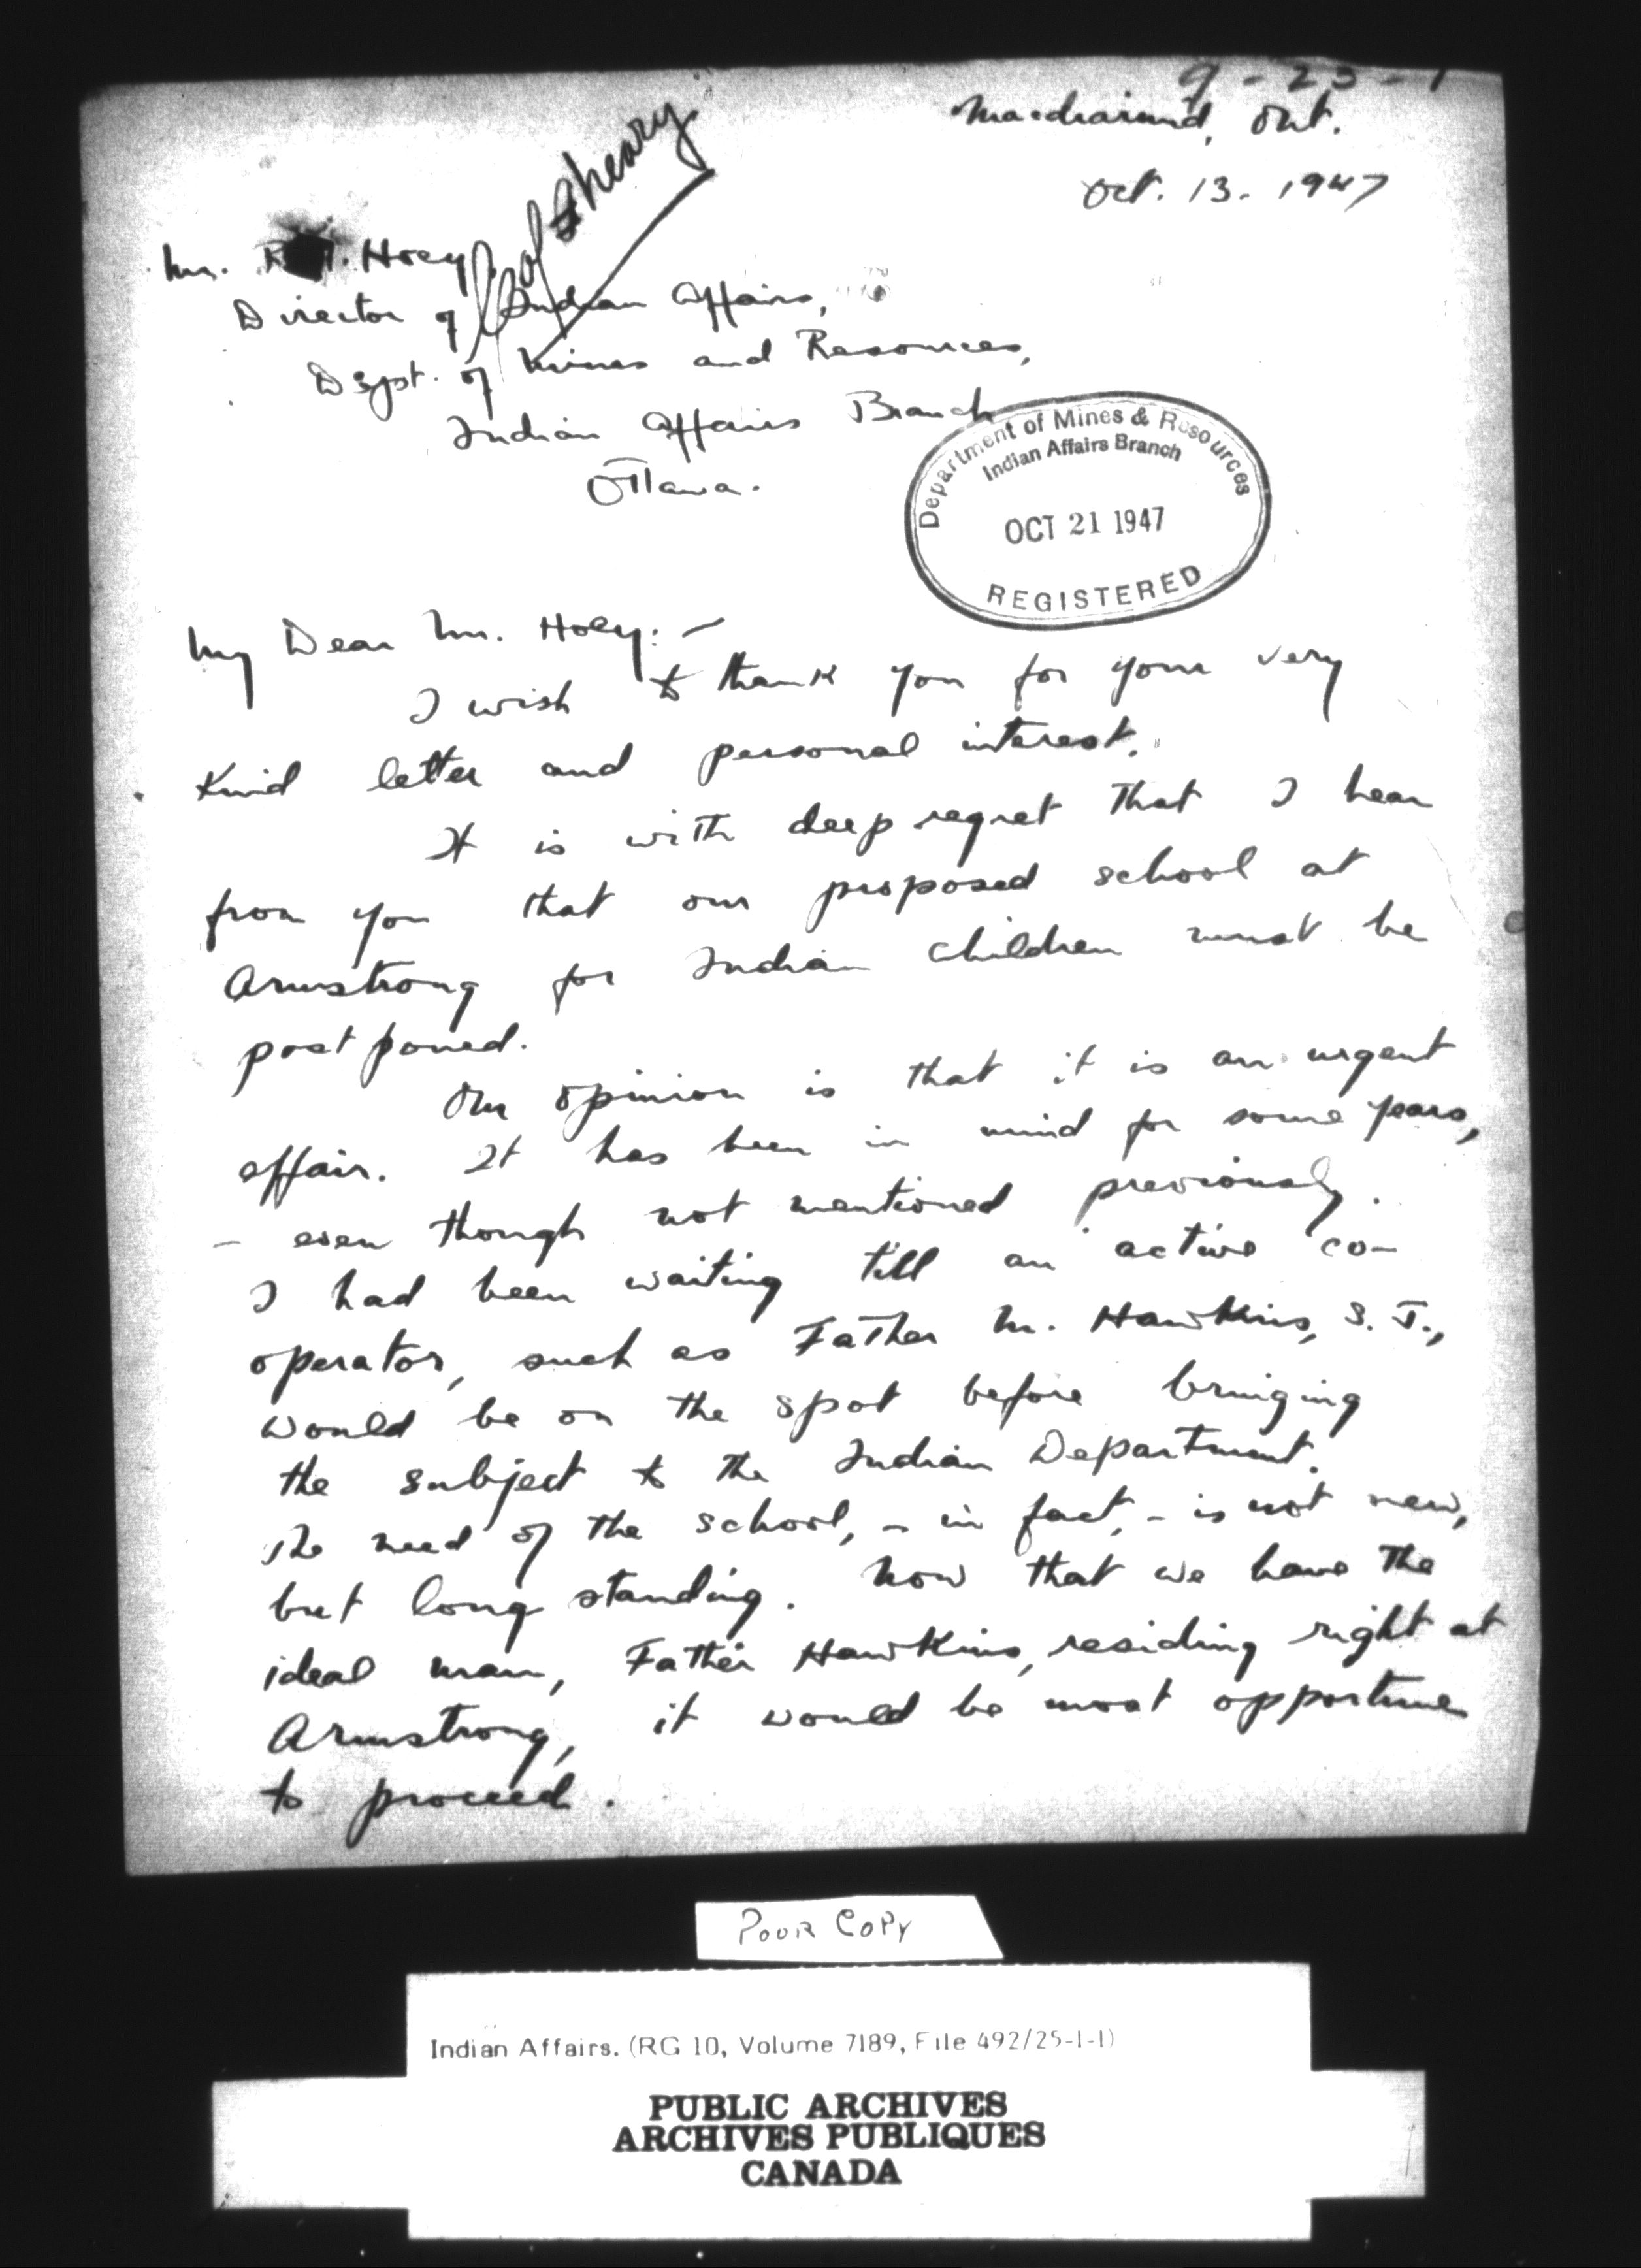 9-23-1
Macdiarmid, Ont.
Oct. 13. 1947
Mr. Hoey
Director of Indian Affairs,
Dept. of Mines and Resources,
Indian Affairs Branch
Ottawa.
Department of Mines & Resources
Indian Affairs Branch
OCT 21 1947
REGISTERED
My Dear Mr. Hoey: -
I wish to thank you for your very
kind letter and personal interest.
It is with deep regret that I hear
from you that our proposed school at
Armstrong for Indian children must be
postponed.
Our opinion is that it is an urgent
affair. It has been in mind for some years,
- even though not mentioned previously.
I had been waiting till an active co-
operator, such as Father M. Hawkins, S.J.,
would be on the spot before bringing
the subject to the Indian Department.
The need of the school, - in fact, - is not new,
but long standing. Now that we have the
ideal man, Father Hawkins, residing right at
Armstrong, it would be most opportune
to proceed.
POOR COPY
Indian Affairs. (RG 10, Volume 7189, File 492/25-1-1)
PUBLIC ARCHIVES
ARCHIVES PUBLIQUES
CANADA